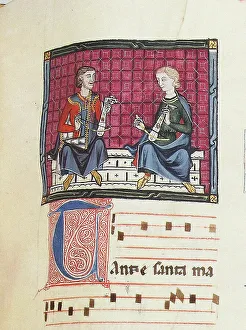 Tante santa ma